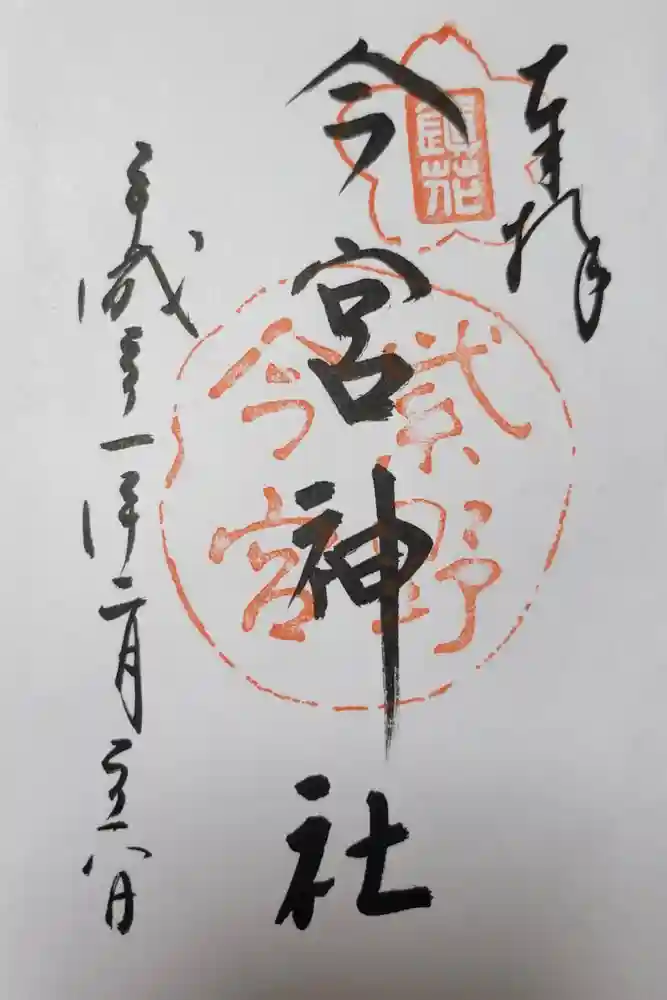 奉拝
鎮花
今宮神社
紫野
今宮
平成三十一年二月二十六日